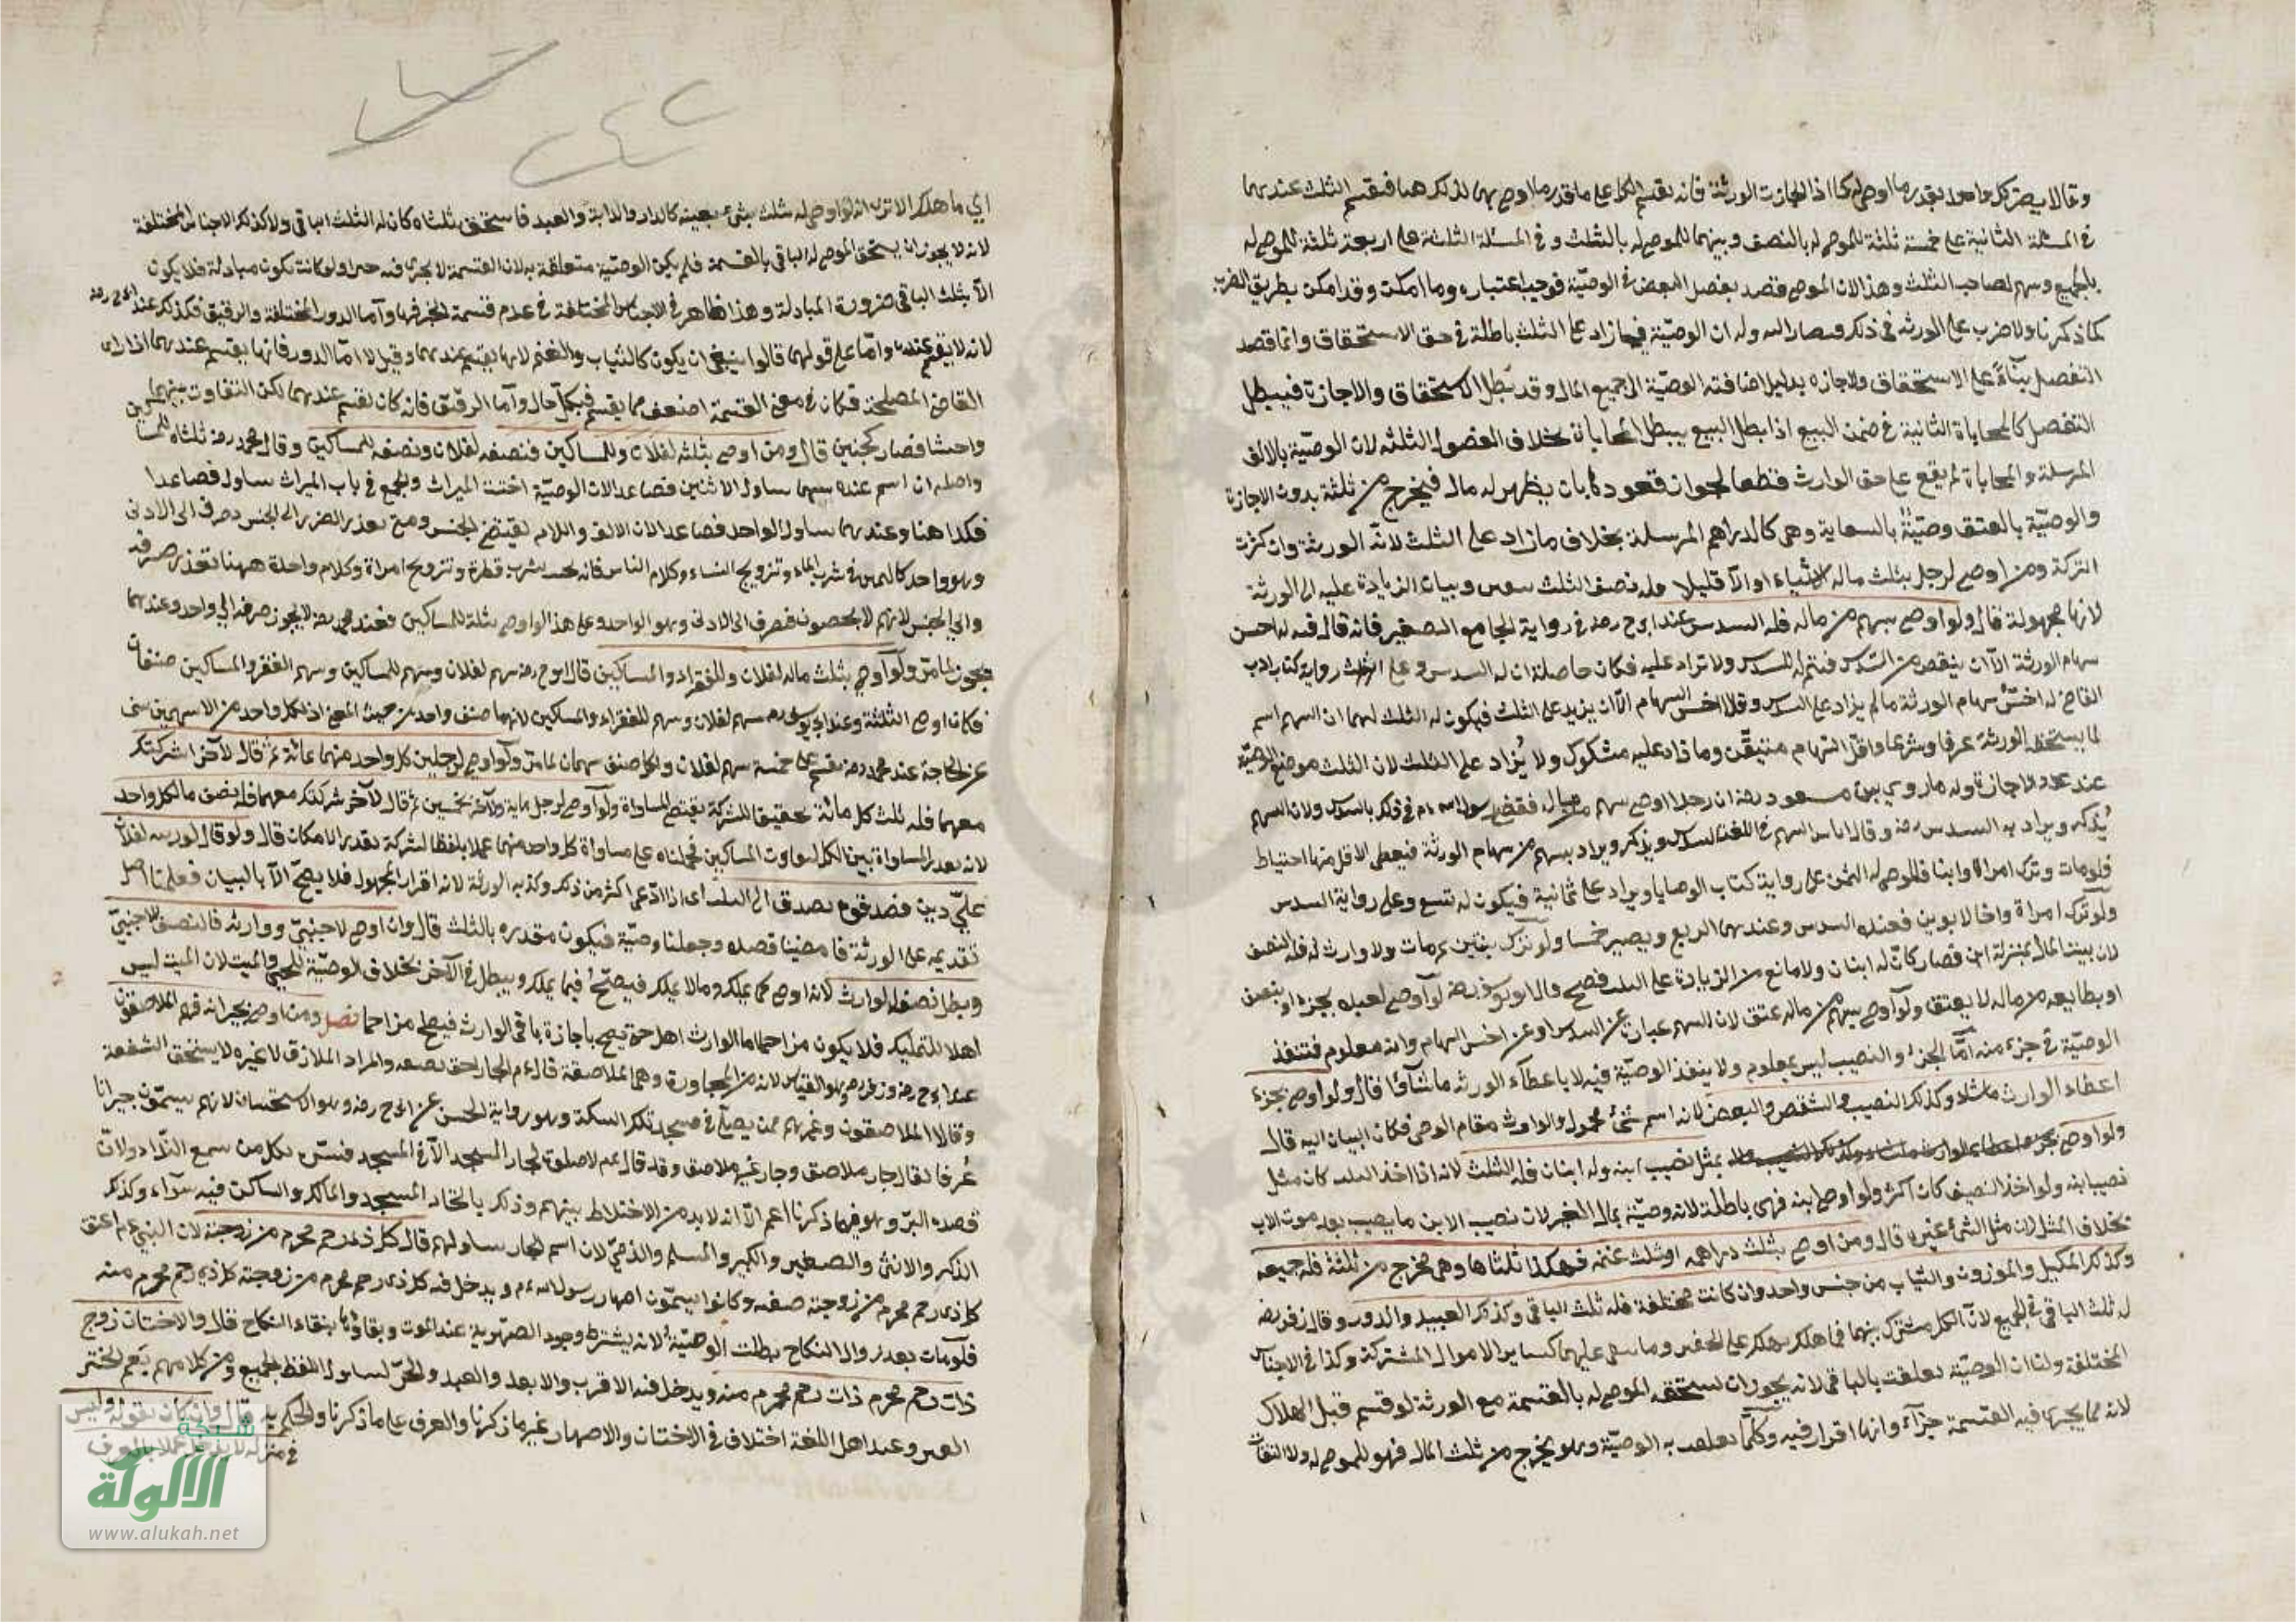 وقالا يضرب كل واحد بقدر ما اوصى له كما اذا اجازت الورثة فانه يقسم الكل على ما قدر ما اوصى بهما لذلك هنا فيقسم الثلث عندهما
في المسئلة الثانية على خمسة ثلثة للموصى له بالنصف وبينهما للموصى له بالثلث وفي المسئلة الثلثة على اربعة ثلثة للموصى له
بالجميع وسهم لصاحب الثلث وهذا لان الموصى قصد بفضل البعض في الوصيّة فوجب اعتباره وما امكن وقد امكن بطريق الضرب
كما ذكرنا ولا ضرب على الورثة في ذلك وله ان الوصيّة فيما زاد على الثلث باطلة في حق الاستحقاق وانما قصد
التفصل بناءً على الاستحقاق والاجازه بدليل اضافته الوصيّة الى جميع المال وقد بطل الاستحقاق والاجازة فيبطل
التفصل كالمحاباة الثانية في ضمن البيع اذا بطل البيع يبطل المحاباة بخلاف الفصول الثلثة لان الوصيّة بالالف
المرسلة والمحاباة لم يقع على حق الوارث قطعا لجواز بان يظهر له مال فيخرج من ثلثه بدون الاجازة
والوصيّة بالعتق وصيّة بالسعاية وهي كالدراهم المرسلة بخلاف ما زاد على الثلث لانه الورثة وان كثرت
التركة ومن اوصى لرجل بثلث ماله الا شياء او الا قليلا فله نصف الثلث وبيان الزيادة عليه الى الورثة
لانها مجهولة قال ولو اوصى بسهم من ماله فله السدس عند ابي ح رحه في رواية الجامع الصغير فانه قال فيه له احسن
سهام الورثة الا ان ينقص من السدس فيتم له السدس ولا تزاد عليه فكان حاصله ان له السدس وعلى رواية كتاب
القاضي له اخس سهام الورثة ما لم يزاد على السدس وقالا اخس السهام الا ان يزيد على الثلث فيكون له الثلث لهما ان السهم اسم
لما يستحقه الورثة عرفا وشرعا واقل السهام متيقّن وما زاد عليه مشكوك ولا يُزاد على الثلث لان الثلث موضع الوصيّة
عند عدم الاجازة وله ما روي بن مسعود رضه ان رجلا اوصى بسهم من ماله فقضى رسول الله عم في ذلك بالسدس ولان السهم
يُذكر ويراد به السدس وقال اياس السهم في اللغة السدس ويذكر ويراد بسهم من سهام الورثة فيعطى الاقل منها احتياط
فلو مات وترك امراة وابنا فللموصى له الثمن على رواية كتاب الوصايا ويراد على ثمانية فيكون له تسع وعلى رواية السدس
ولو ترك امراة واخا لابوين فعنده السدس وعندهما الربع ويصير خمسا ولو ترك بنتين ثم مات ولا وارث له فله النصف
لان بيت المال بمنزلة ابن فصار كان له ابنان ولا مانع من الزيادة على الثلث فصح لو اوصى لعبده بجزء او
من ماله لا يعتق ولو اوصى بسهم من ماله عتق لان السهم عبارة عن السدس او عن اخس السهام وانه معلوم فتنفذ
الوصيّة في جزء منه اما الجزء والنصيب ليس بمعلوم ولا ينفذ الوصيّة فيه الا باعطاء الورثة ما شاؤا قال ولو اوصى بجزء
اعطاه الوارث ما شاء وكذلك النصيب والشقص والبعض لانه اسم شئ مجهول والوارث مقام الموصى فكان البيان اليه قال
ولو اوصى بمثل نصيب ابنه وله ابنان فله الثلث لانه اذا اخذ الثلث كان مثل
نصيب ابنه ولو اخذ النصف كان اكثر ولو اوصى ابنه فهى باطلة لانه وصيّة بمال الغير لان نصيب الابن ما يصيب بعد موت الاب
بخلاف المثل لان مثل الشئ غيره قال ومن اوصى بثلث دراهمه او ثلث غنمه فهلك ثلثاها وهي تخرج من ثلثه فله جميعه
وكذلك المكيل والموزون والثياب من جنس واحد وان كانت مختلفة فله ثلث الباقي وكذلك العبيد والدور وقال زفر رضه
له ثلث الباقي في الجميع لان الكل مشترك بينهما فما هلك يهلك على الحقين وما بقي عليهما كسائر الاموال المشتركة وكذا في الاجناس
المختلفة ولنا ان الوصيّة تعلقت بالباقي لانه يجوز ان يستحقه الموصى له بالقسمة مع الورثة لو قسم قبل الهلاك
لانه مما يجري فيه القسمة جزاء وانها اقرار فيه وكلما تعلقت به الوصيّة وهو يخرج من ثلث المال فهو للموصى له ولا التفات
اي ما هلك الا ترى انه لو اوصى له بثلث شئ بعينه كالدار والدابة والعبد فاستحق ثلثاه كان له الثلث الباقي ولا كذلك الاجناس المختلفة
لانه لا يجوز ان يستحق الموصى له الباقي بالقسمة فلم يكن الوصيّة متعلقة به لان القسمة لا يجرى فيه جبرا ولو كانت تكون مبادلة فلا يكون
الا بثلث الباقي ضرورة المبادلة وهذا ظاهر في الاجناس المختلفة في عدم قسمة الجبر فيها واما الدور المختلفة والرقيق فكذلك عند ابي ح رحه
لانه لا يقسم عنده واما على قولهما قالوا ينبغي ان يكون كالثياب والغنم لانها يقسم عندهما وقيل لا اما الدور فانها يقسم عندهما اذا راى
القاضي المصلحة فكان في معنى القسمة اضعف مما يقسم في كل حال واما الرقيق فانه كان يقسم عندهما لكن التفاوت بينهما
واحشا فصار كجنسين قال ومن اوصى بثلثه لفلان وللمساكين فنصفه لفلان ونصفه للمساكين وقال محمد رحه ثلثاه للمساكين
واصله ان اسم الاثنين فصاعدا لان الوصيّة اخت الميراث والجمع في باب الميراث يتناول فصاعدا
فكذا هنا وعندهما يتناول الواحد فصاعدا لان الالف واللام يقتضي الجنس ومتى تعذر الصرف الى الجنس صرف الى الادنى
وهو واحد كاليمين في شرب الماء وتزويج النساء وكلام الناس فانه يحنث بشرب قطرة وتزويج امراة وكلام واحدة ههنا تعذر صرفه
الى الجنس لانهم لا يحصون فصرف الى الادنى وهو الواحد وعلى هذا لو اوصى بثلثه للمساكين فعند محمد رضه لا يجوز صرفه الى واحد وعندهما
يجوز لما مر ولو اوصى بثلث ماله لفلان وللفقراء والمساكين قال ابو ح رحه سهم لفلان وسهم للمساكين وسهم الفقراء والمساكين صنفان
فكان اوصى الثلثة وعند ابي يوسف رحه سهم لفلان وسهم للفقراء والمساكين لانهما صنف واحد من حيث المعنى اذ كل واحد من الاسمين
عن الحاجة عند محمد رحه يقسم على خمسة سهم لفلان ولكل صنف سهمان لما مر ولو اوصى لرجلين كل واحد منهما بمائة ثم قال لآخر اشركتك
معهما فله ثلث كل مائة تحقيقا للشركة يقتضي المساواة ولو اوصى لرجل مائة ولآخر بخمسين ثم قال لآخر شركتك معهما فله نصف ما لكل واحد
لانه تعذر المساواة بين الكل لتفاوت المساكين فحملناه على مساواة كل واحد منهما عملا بلفظ الشركة بقدر الامكان قال ولو قال لورثته لفلان
عليّ دين فصدقوه يصدق الى الثلث اى اذا ادّعى اكثر من ذلك وكذبه الورثة لانه اقرار المجهول فلا يصحّ الا بالبيان فعلمنا اصل
تقديمه على الورثة فامضينا قصده وجعلنا وصيّة فيكون مقدره بالثلث قال وان اوصى لاجنبيّ ووارثه فالنصف للاجنبيّ
وبطل نصف الوارث لانه اوصى بما يملك وما لا يملك فيصحّ فيما يملك ويبطل في الآخر بخلاف الوصيّة للحي والميت لان الميت ليس
اهلا للتمليك فلا يكون مزاحما اما الوارث اهل حتى يصح باجازة باقي الوارث فيصلح مزاحما فصل ومن اوصى بجيرانه فهم الملاصقون
عند ابي ح رحه وزفر رحه وهو القياس لانه من المجاورة وهما الملاصقة قال عم الجار احق بصقبه والمراد الملازق لا غيره لا يستحق الشفعة
وقالا الملاصقون وغيرهم ممن يصلّى في مسجد تلك السكة وهو رواية الحسن عن ابي ح رحه وهو الاستحسان لانهم يسمّون جيرانا
عُرفا يقال جار ملاصق وجار غير ملاصق وقد قال عم لا صلوة لجار المسجد الا في المسجد فسّر بكل من سمع النّداء ولان
قصده البرّ وهو فيما ذكرنا اعم الا انه لا بد من الاختلاط بينهم وذلك باتحاد المسجد والمالك والساكن فيه سواء وكذلك
الذكر والانثى والصغير والكبير والمسلم والذمّي لان اسم الجار يتناولهم قال كل ذي رحم محرم من زوجته لان النبي عم اعتق
كل ذي رحم محرم من زوجته صفيه وكانوا يسمّون اصهار رسول الله عم ويدخل فيه كل ذي رحم محرم من زوجته كل ذي رحم محرم منه
فلو مات بعد زوال النكاح بطلت الوصيّة لانه يشترط وجود الصهرية عند الموت وبقاؤها ببقاء النكاح قال والاختان زوج
ذات رحم محرم ذات رحم محرم منه ويدخل فيه الاقرب والابعد والعبد والحرّ لتناول اللفظ الجميع
وعند اهل اللغة اختلاف في الاختان والاصهار غير ما ذكرنا والعرف على ما ذكرنا
شبكة
الألوكة
www.alukah.net